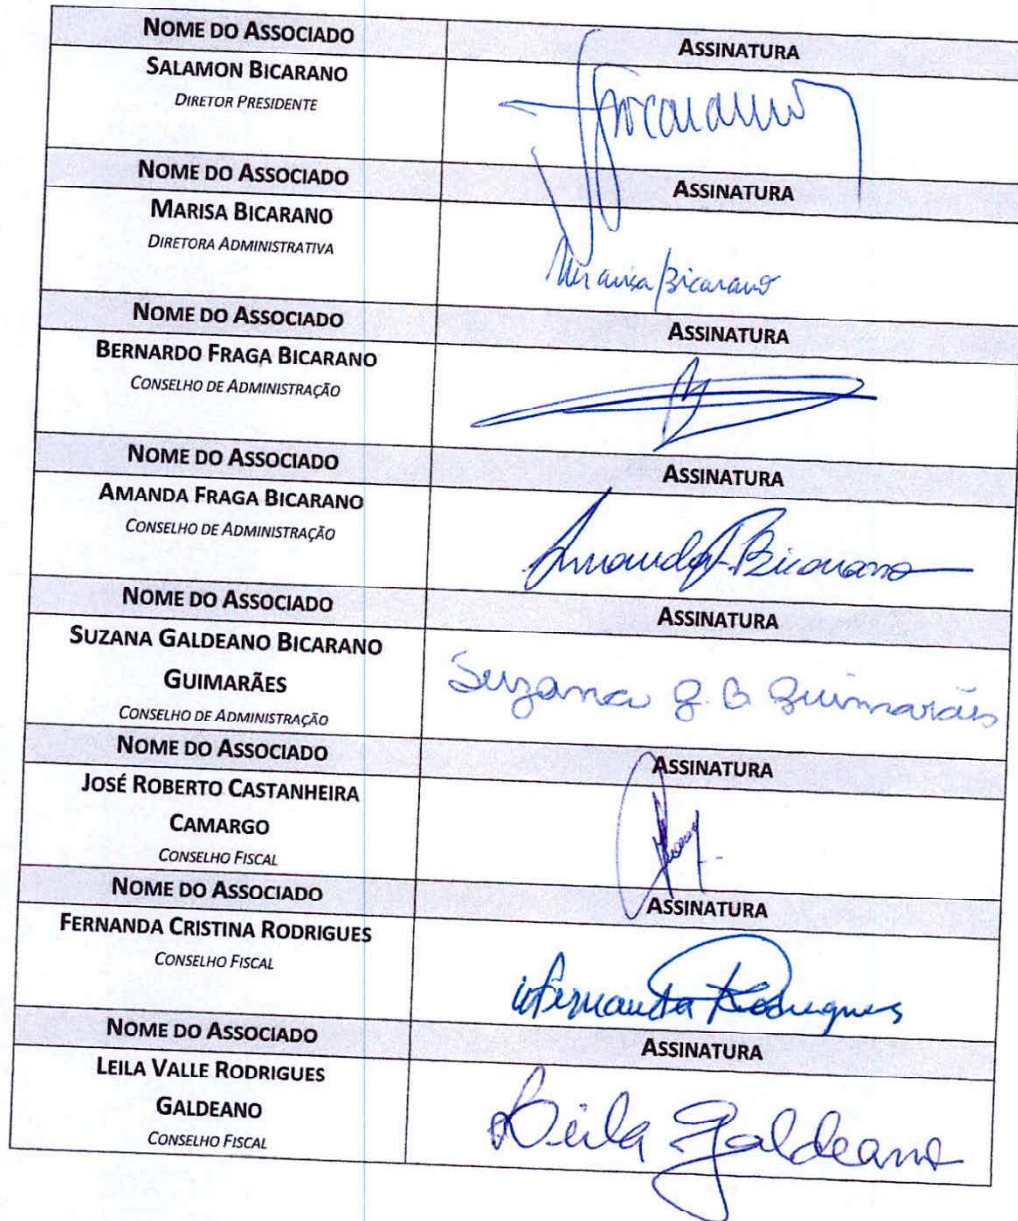 NOME DO ASSOCIADO ASSINATURA
SALAMON BICARANO
DIRETOR PRESIDENTE
Bicarano
NOME DO ASSOCIADO ASSINATURA
MARISA BICARANO
DIRETORA ADMINISTRATIVA
Bicarano
NOME DO ASSOCIADO ASSINATURA
BERNARDO FRAGA BICARANO
CONSELHO DE ADMINISTRAÇÃO
NOME DO ASSOCIADO ASSINATURA
AMANDA FRAGA BICARANO
CONSELHO DE ADMINISTRAÇÃO
Amanda F. Bicarano
NOME DO ASSOCIADO ASSINATURA
SUZANA GALDEANO BICARANO
GUIMARÃES
CONSELHO DE ADMINISTRAÇÃO
Suzana G. B. Guimarães
NOME DO ASSOCIADO ASSINATURA
JOSÉ ROBERTO CASTANHEIRA
CAMARGO
CONSELHO FISCAL
NOME DO ASSOCIADO ASSINATURA
FERNANDA CRISTINA RODRIGUES
CONSELHO FISCAL
Fernanda Rodrigues
NOME DO ASSOCIADO ASSINATURA
LEILA VALLE RODRIGUES
GALDEANO
CONSELHO FISCAL
Leila Galdeano